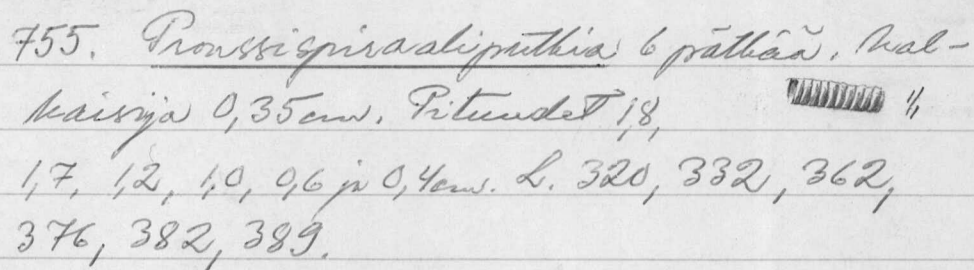 755. Pronssispiraaliputkia 6 pätkää. Hal-
kaisija 0,35 cm. Pituudet 1,8, 1/1
1,7, 1,2, 1,0, 0,6 ja 0,4 cm. L. 320, 332, 362,
376, 382, 389.